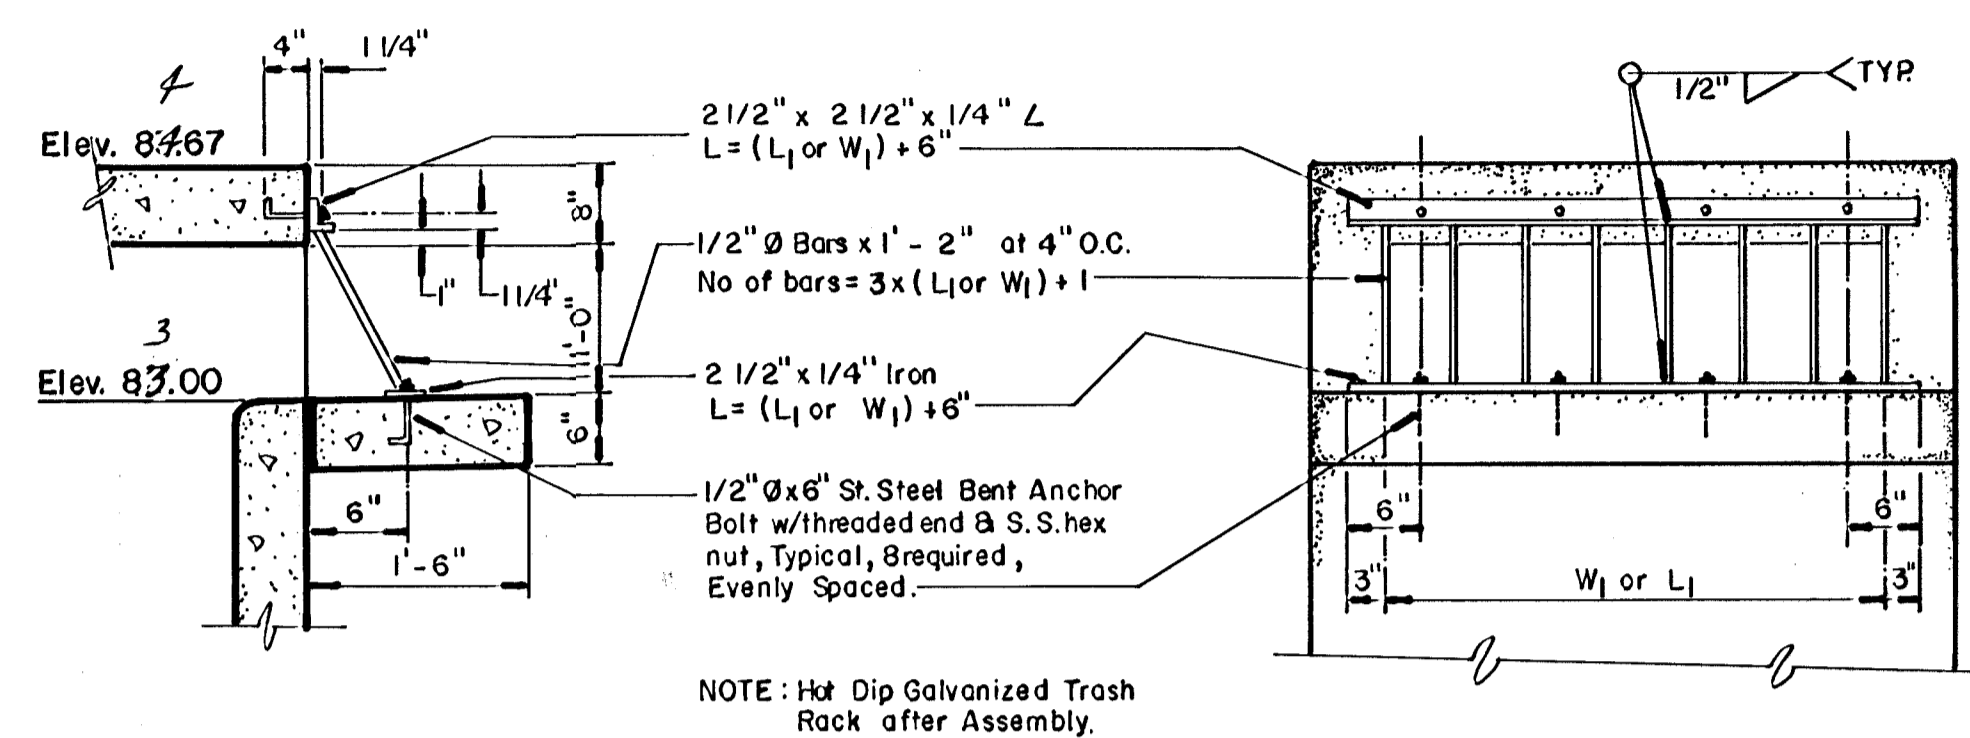 4" 1 1/4"
4
Elev. 84.67
8"
1" 1 1/4"
1'-0"
3
Elev. 83.00
6"
6"
1'-6"
2 1/2" x 2 1/2" x 1/4" L
L = (L1 or W1) + 6"
1/2" Ø Bars x 1' - 2" at 4" O.C.
No of bars = 3 x (L1 or W1) + 1
2 1/2" x 1/4" Iron
L = (L1 or W1) + 6"
1/2" Ø x 6" St. Steel Bent Anchor
Bolt w/threaded end & S.S. hex
nut, Typical, 8 required,
Evenly Spaced.
NOTE: Hot Dip Galvanized Trash
Rack after Assembly.
1/2" TYP.
6" 6"
3" W1 or L1 3"